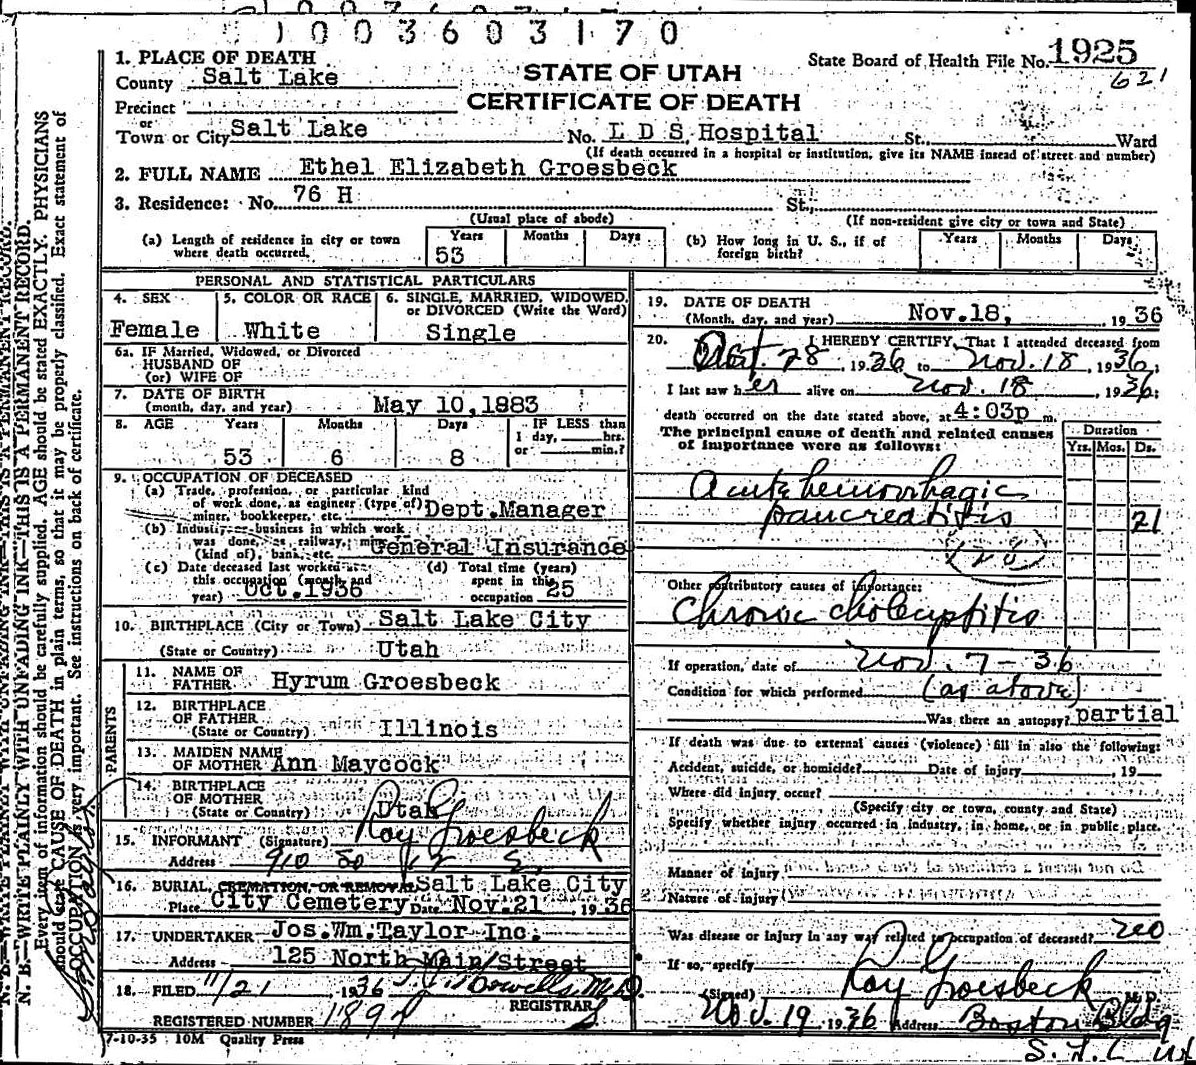 1003603170
1. PLACE OF DEATH
County Salt Lake
State Board of Health File No. 1925
621
STATE OF UTAH
CERTIFICATE OF DEATH
Precinct
or
Town or City Salt Lake No. L D S Hospital St., Ward
(If death occurred in a hospital or institution, give its NAME insead of street and number)
2. FULL NAME Ethel Elizabeth Groesbeck
3. Residence: No. 76 H St.,
(Usual place of abode) (If non-resident give city or town and State)
(a) Length of residence in city or town where death occurred. Years 53 Months Days
(b) How long in U. S., if of foreign birth? Years Months Days
PERSONAL AND STATISTICAL PARTICULARS
4. SEX Female
5. COLOR OR RACE White
6. SINGLE, MARRIED, WIDOWED, or DIVORCED (Write the Word) Single
6a. IF Married, Widowed, or Divorced
HUSBAND OF
(or) WIFE OF
7. DATE OF BIRTH
(month, day, and year) May 10,1883
8. AGE Years Months Days IF LESS than
1 day, hrs.
or min.?
53 6 8
9. OCCUPATION OF DECEASED
(a) Trade, profession, or particular kind
of work done, as engineer (type of)
miner, bookkeeper, etc. Dept.Manager
(b) Industry or business in which work
was done, as railway, mine
(kind of), bank, etc. General Insurance
(c) Date deceased last worked at
this occupation (month and
year) Oct.1936
(d) Total time (years)
spent in this
occupation 25
10. BIRTHPLACE (City or Town) Salt Lake City
(State or Country) Utah
PARENTS
11. NAME OF
FATHER Hyrum Groesbeck
12. BIRTHPLACE
OF FATHER
(State or Country) Illinois
13. MAIDEN NAME
OF MOTHER Ann Maycock
14. BIRTHPLACE
OF MOTHER
(State or Country) Utah
15. INFORMANT (Signature) Roy Groesbeck
Address 910 So 12 E.
16. BURIAL, CREMATION, OR REMOVAL Salt Lake City
Place City Cemetery Date Nov.21, 1936
17. UNDERTAKER Jos.Wm.Taylor Inc.
Address 125 North Main Street
18. FILED 11/21 1936 M.D.
REGISTRAR
REGISTERED NUMBER 1897
7-10-35 10M Quality Press
19. DATE OF DEATH
(Month, day, and year) Nov.18, 1936
20. I HEREBY CERTIFY, That I attended deceased from
Oct. 28, 1936 to Nov. 18, 1936;
I last saw her alive on Nov. 18, 1936;
death occurred on the date stated above, at 4:03p m.
The principal cause of death and related causes
of importance were as follows:
Duration
Yrs. Mos. Ds.
Acute hemorrhagic
pancreatitis 21
128
Other contributory causes of importance:
Chronic cholecystitis
If operation, date of Nov. 7-36
Condition for which performed (as above)
Was there an autopsy? partial
If death was due to external causes (violence) fill in also the following:
Accident, suicide, or homicide? Date of injury , 19
Where did injury occur?
(Specify city or town, county and State)
Specify whether injury occurred in industry, in home, or in public place.
Manner of injury
Nature of injury
Was disease or injury in any way related to occupation of deceased? no
If so, specify
(Signed) Roy Groesbeck M. D.
Nov. 19 1936 Address Boston Bldg
S. L. C. Ut
N. B.—WRITE PLAINLY WITH UNFADING INK—THIS IS A PERMANENT RECORD.
Every item of information should be carefully supplied. AGE should be stated EXACTLY. PHYSICIANS
should state CAUSE OF DEATH in plain terms, so that it may be properly classified. Exact statement of
OCCUPATION is very important. See instructions on back of certificate.